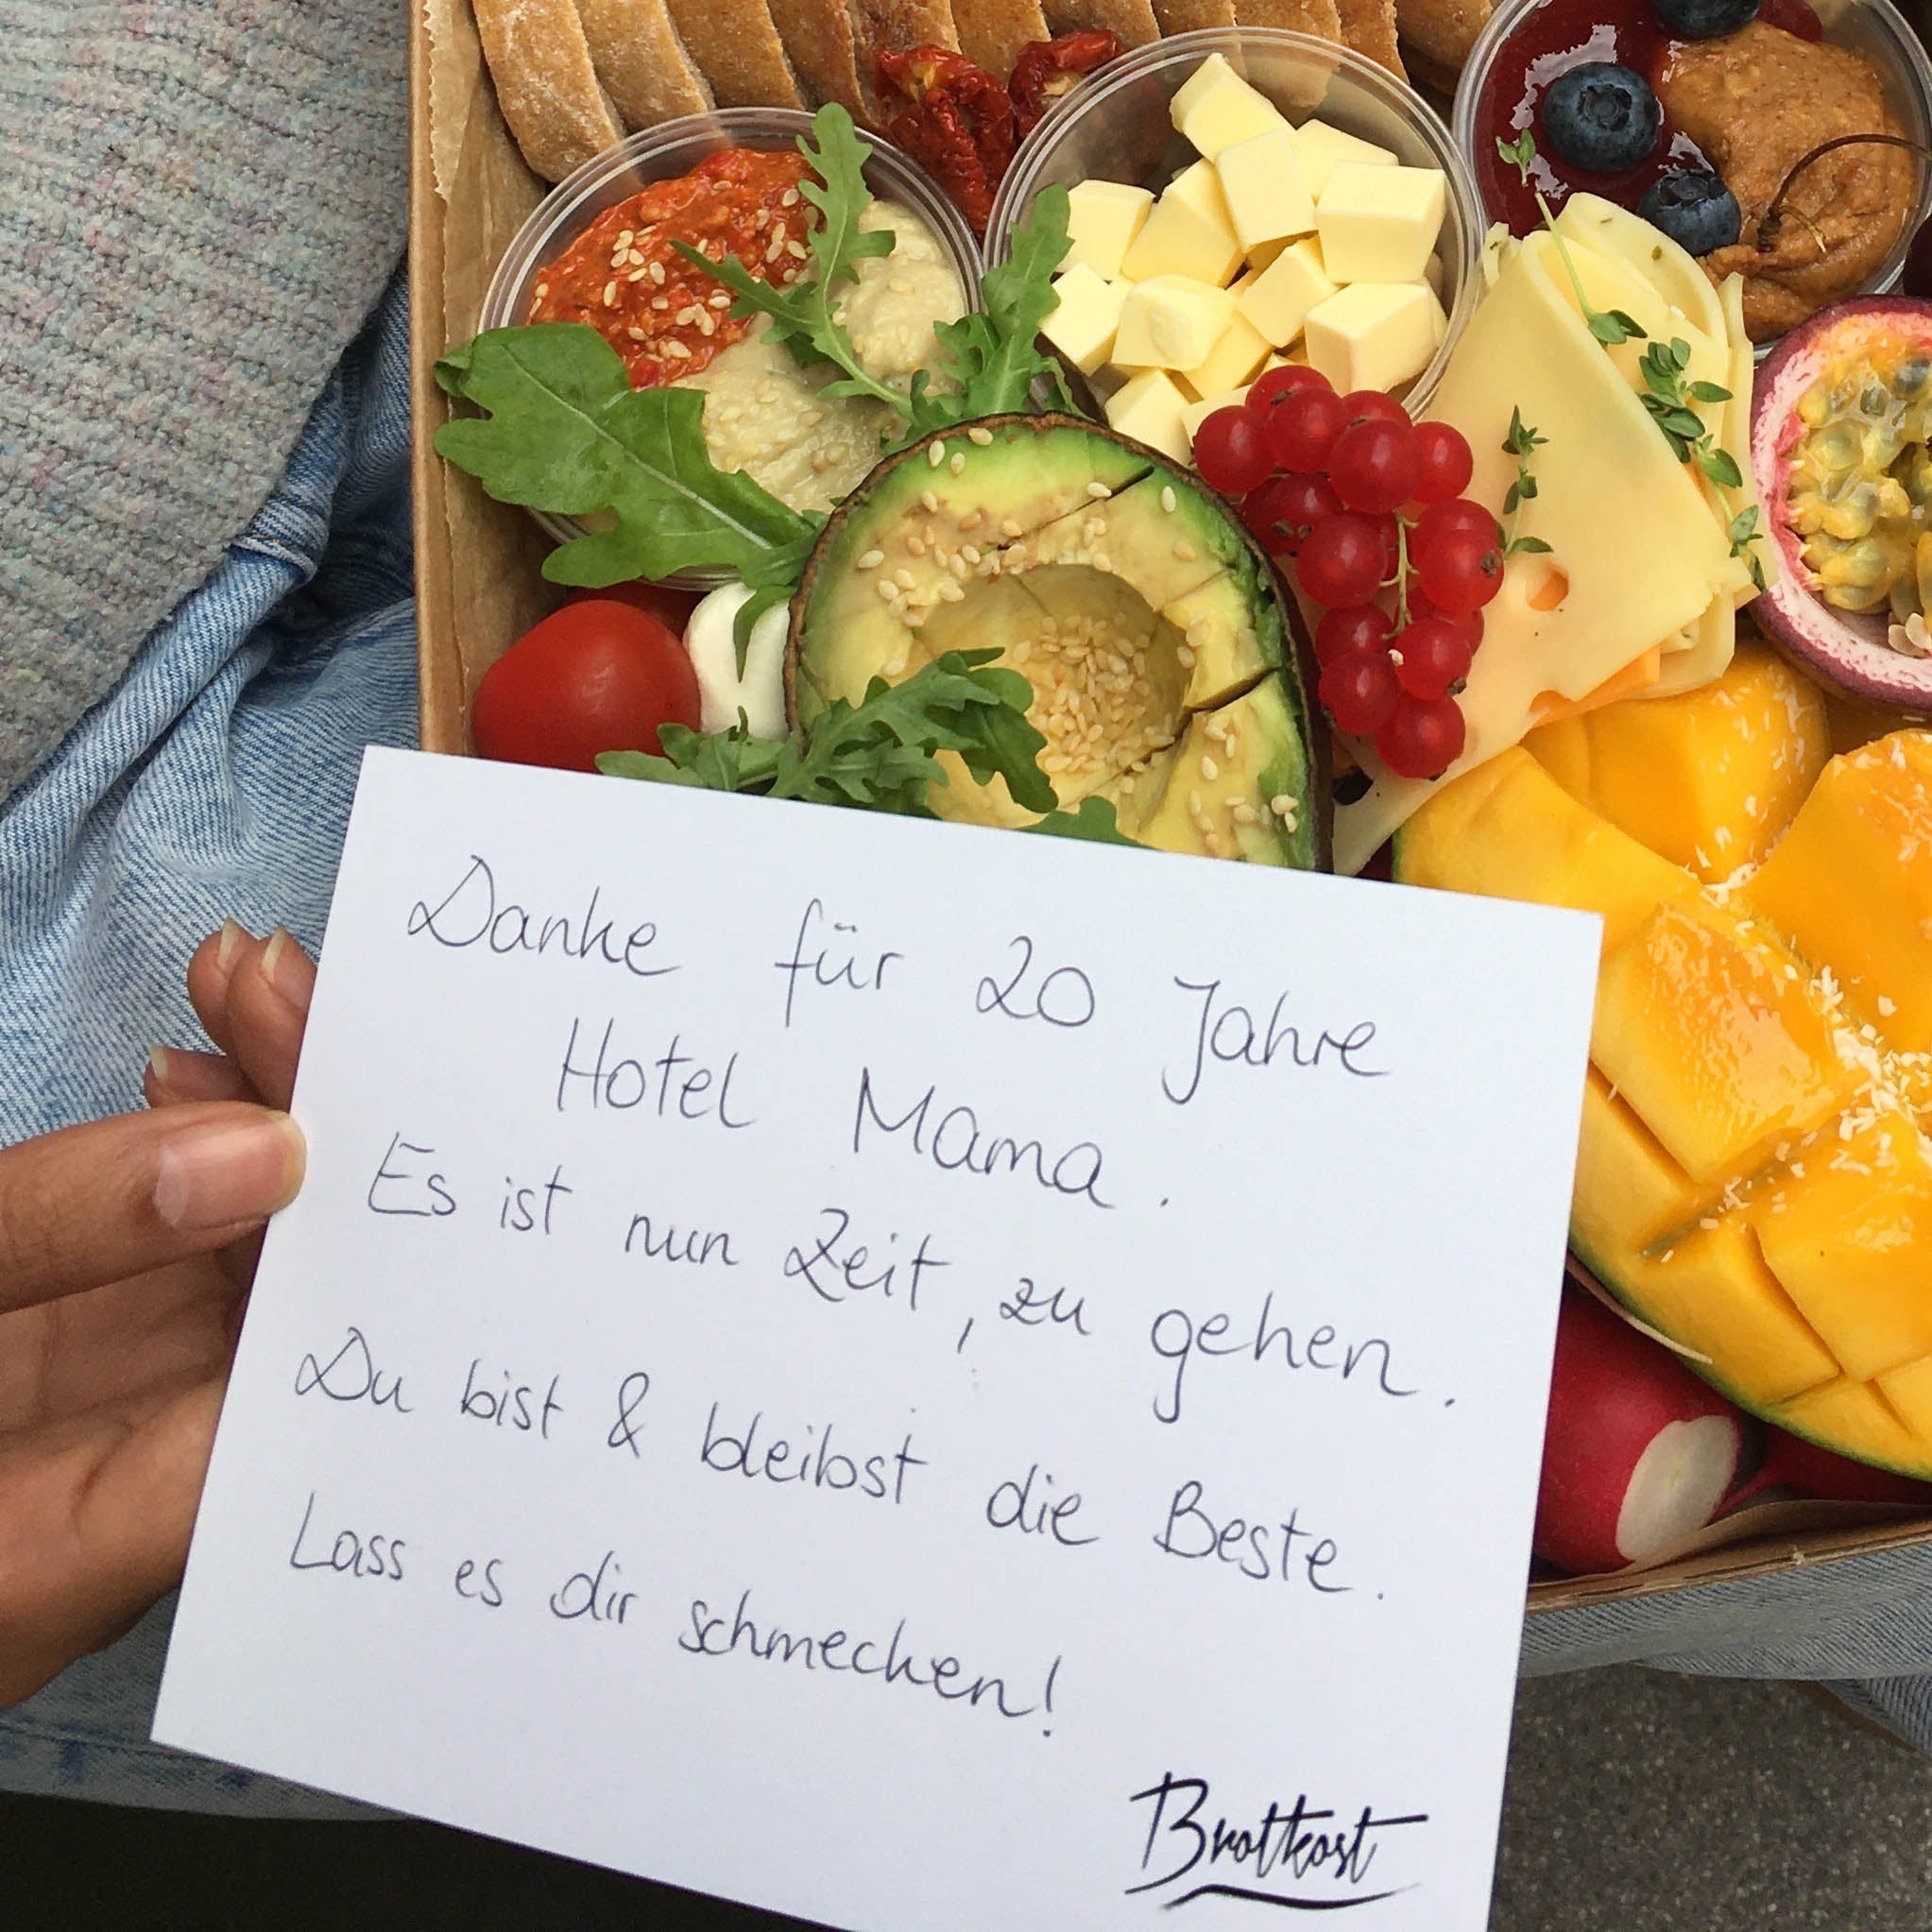 Danke für 20 Jahre
Hotel Mama.
Es ist nun Zeit, zu gehen.
Du bist & bleibst die Beste.
Lass es dir schmecken!
Brotkost